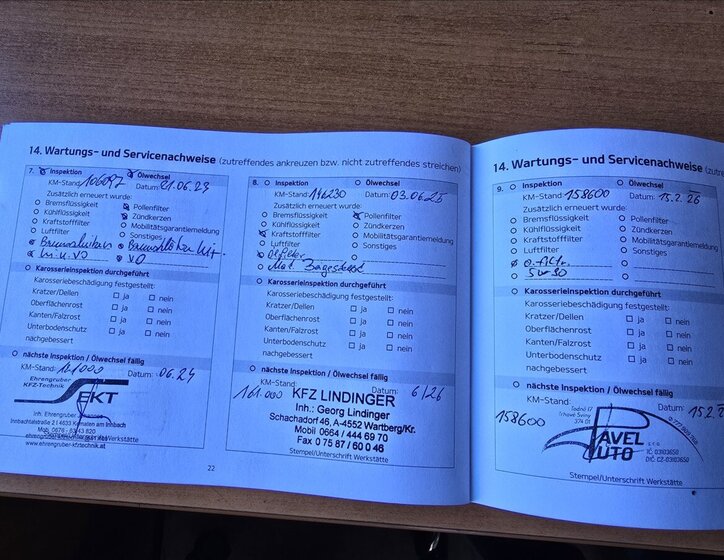 14. Wartungs- und Servicenachweise (zutreffendes ankreuzen bzw. nicht zutreffendes streichen)
7. Inspektion Ölwechsel
KM-Stand: Datum:
Zusätzlich erneuert wurde:
Bremsflüssigkeit Pollenfilter
Kühlflüssigkeit Zündkerzen
Kraftstofffilter Mobilitätsgarantiemeldung
Luftfilter Sonstiges
Karosserieinspektion durchgeführt
Karosseriebeschädigung festgestellt:
Kratzer/Dellen ja nein
Oberflächenrost ja nein
Kanten/Falzrost ja nein
Unterbodenschutz ja nein
nachgebessert
nächste Inspektion / Ölwechsel fällig
KM-Stand: Datum: 06.24
Ehrengruber
KFZ-Technik
EKT
Inh. Ehrengruber
www.ehrengruber-kfztechnik.at
22
8. Inspektion Ölwechsel
KM-Stand: 146230 Datum: 03.06.25
Zusätzlich erneuert wurde:
Bremsflüssigkeit Pollenfilter
Kühlflüssigkeit Zündkerzen
Kraftstofffilter Mobilitätsgarantiemeldung
Luftfilter Sonstiges
Ölfilter
Karosserieinspektion durchgeführt
Karosseriebeschädigung festgestellt:
Kratzer/Dellen ja nein
Oberflächenrost ja nein
Kanten/Falzrost ja nein
Unterbodenschutz ja nein
nachgebessert
nächste Inspektion / Ölwechsel fällig
KM-Stand: Datum:
161.000 6/26
KFZ LINDINGER
Inh.: Georg Lindinger
Schachadorf 46, A-4552 Wartberg/Kr.
Mobil 0664 / 444 69 70
Fax 0 75 87 / 60 0 46
Stempel/Unterschrift Werkstätte
14. Wartungs- und Servicenachweise
9. Inspektion Ölwechsel
KM-Stand: 158600 Datum: 15.2.26
Zusätzlich erneuert wurde:
Bremsflüssigkeit Pollenfilter
Kühlflüssigkeit Zündkerzen
Kraftstofffilter Mobilitätsgarantiemeldung
Luftfilter Sonstiges
5W30
Karosserieinspektion durchgeführt
Karosseriebeschädigung festgestellt:
Kratzer/Dellen ja nein
Oberflächenrost ja nein
Kanten/Falzrost ja nein
Unterbodenschutz ja nein
nachgebessert
nächste Inspektion / Ölwechsel fällig
KM-Stand: Datum: 15.2.
158600
PAVEL AUTO s.r.o.
IČ: 03103650
DIČ: CZ-03103650
Stempel/Unterschrift Werkstätte